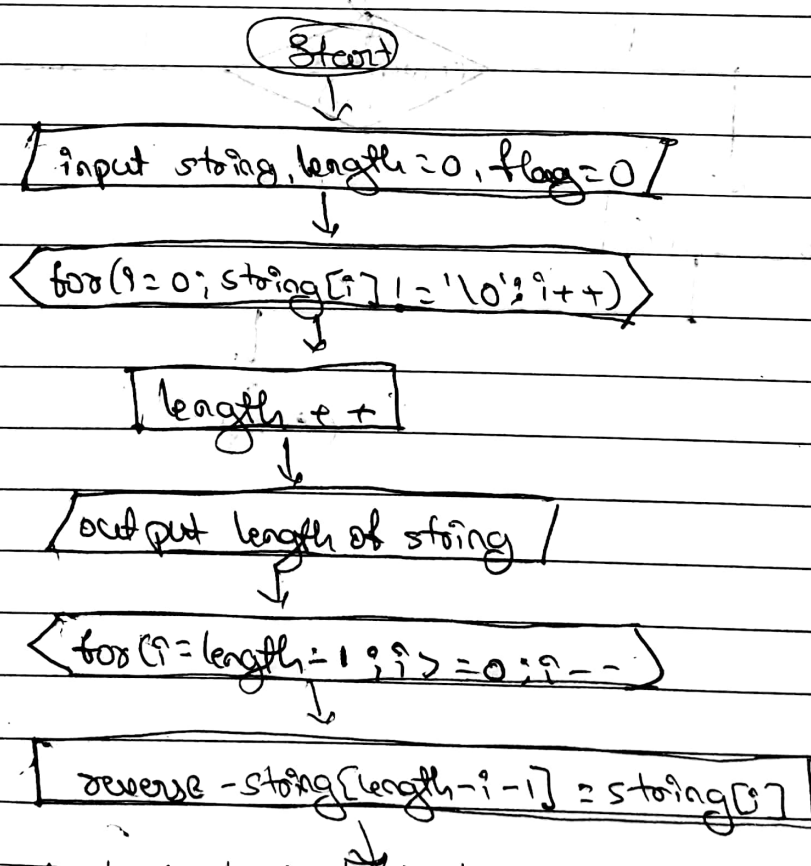 Start
input string, length=0, flag=0
for(i=0; string[i]!='\0'; i++)
length++
output length of string
for(i=length-1; i>=0; i--)
reverse-string[length-i-1] = string[i]